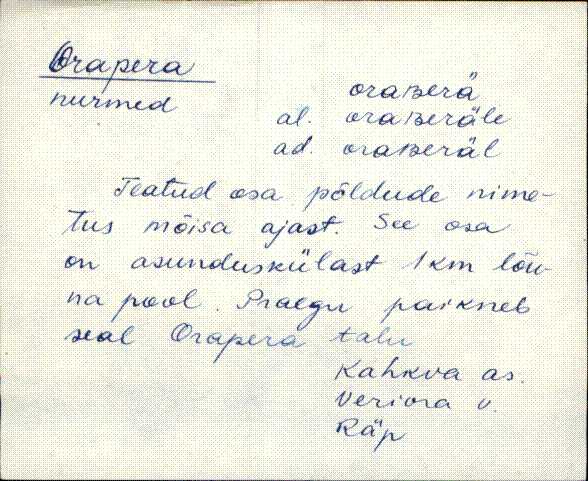 Orapera
nurmed
oraʙerä
al. oraʙeräle
ad. oraʙeräl
Teatud osa põldude nime-
tus mõisa ajast. See osa
on asunduskülast 1km lõu-
na pool. Praegu paikneb
seal Orapera talu
Kahkva as.
Veriora v.
Räp